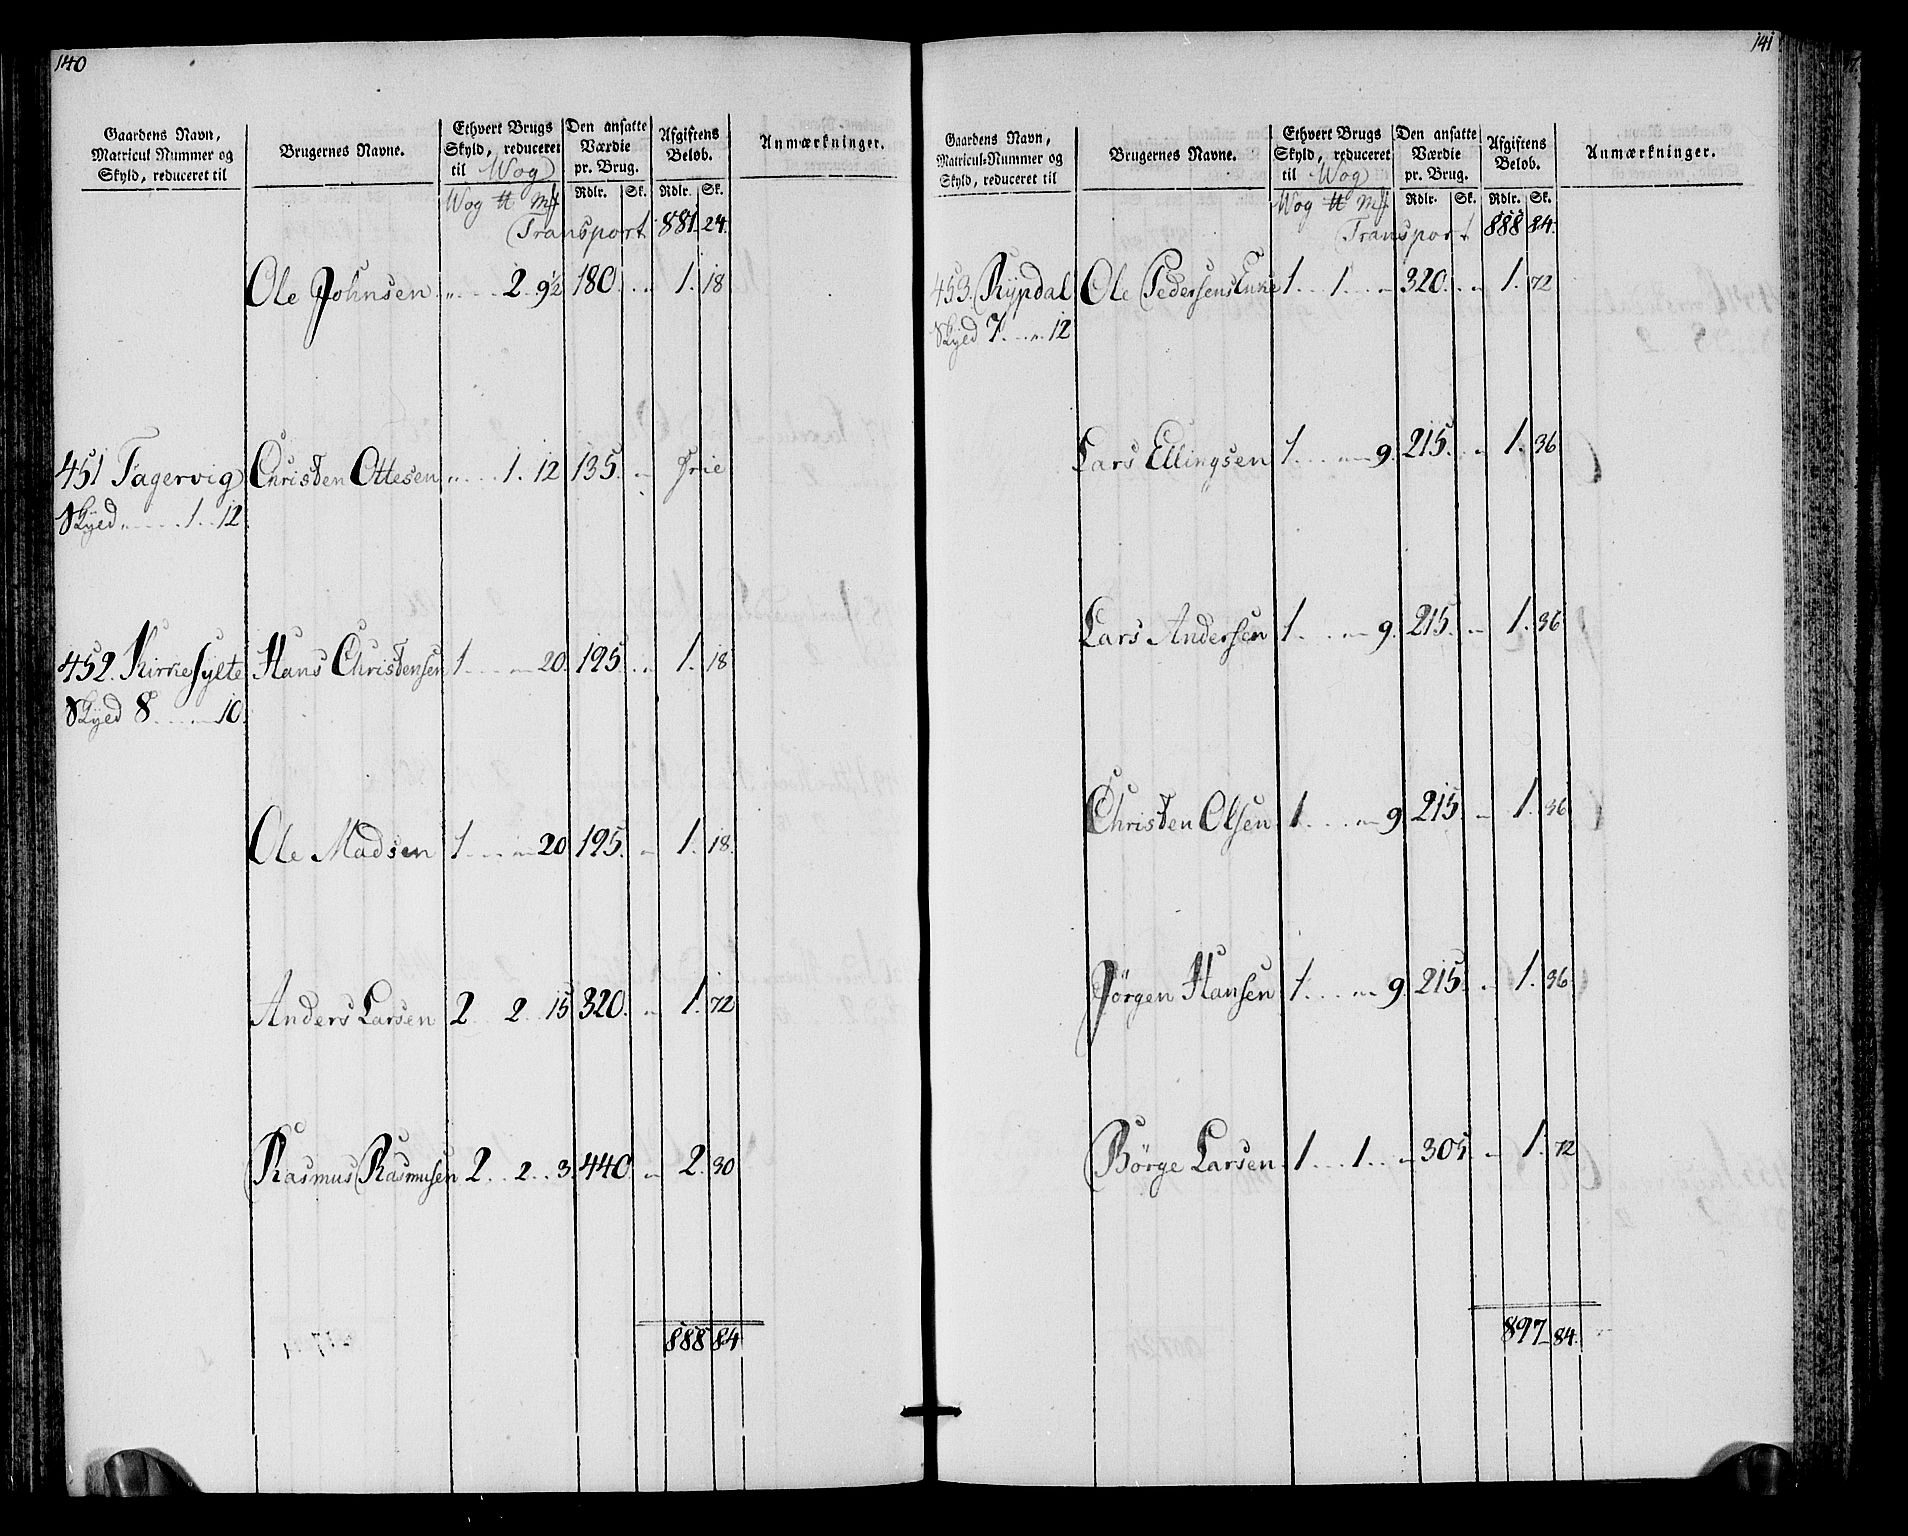 140
Gaardens Navn, Matricul Nummer og Skyld, reduceret til | Brugernes Navne. | Ethvert Brugs Skyld, reduceret til Wog | Den ansatte Værdie pr. Brug. | Afgiftens Beløb. | Anmærkninger.
Wog ℔ Mk | Rdlr. Sk. | Rdlr. Sk.
Transport 881. 24.
Ole Johnsen „ . . . 2. 9½ 180. . „ 1. 18
451 Fagervig Christen Ottesen „ . . . 1. 12 135. „ Frie
Skyed „ . . . . 1. . 12.
452. Kirkesylte Hans Christensen 1 . . . „ 20. 195. . „ 1. 18
Skyed 8 . . . . 10.
Ole Madsen 1 . . . „ 20 195. „ 1. 18.
Anders Larsen 2 . . 2 . . 15 320. „ 1. 72
Rasmus Rasmusen 2 . . 2 . . 3. 440. „ 2. 30
888 84
141
Gaardens Navn, Matricul-Nummer og Skyld, reduceret til | Brugernes Navne. | Ethvert Brugs Skyld, reduceret til Wog | Den ansatte Værdie pr. Brug. | Afgiftens Beløb. | Anmærkninger.
Wog ℔ Mk | Rdlr. Sk. | Rdlr. Sk.
Transport 888 84.
453. Rypdal Ole Pedersens Enke 1. . 1. . . „ 320. . „ 1. 72
Skyed 7. . . „ 12
Lars Ellingsen 1. . . . „ 9. 215. . „ 1. 36
Lars Andersen 1. . . . „ 9. 215. „ 1. 36
Christen Olsen 1. . . . „ 9 215. „ 1. 36
Jörgen Hansen 1. . . . „ 9. 215. „ 1. 36
Börge Larsen 1. . . 1. . . „ 305 „ 1. 72
897 84.